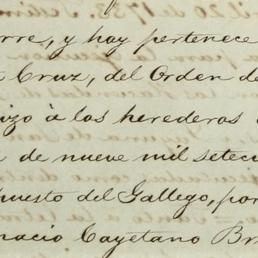 il 20 de 1783.
orre, y hay pertenece
Cruz, del Orden de
izó á los herederos
de nueve mil seteci
puesto del Gallego, por
nacio Cayetano Br